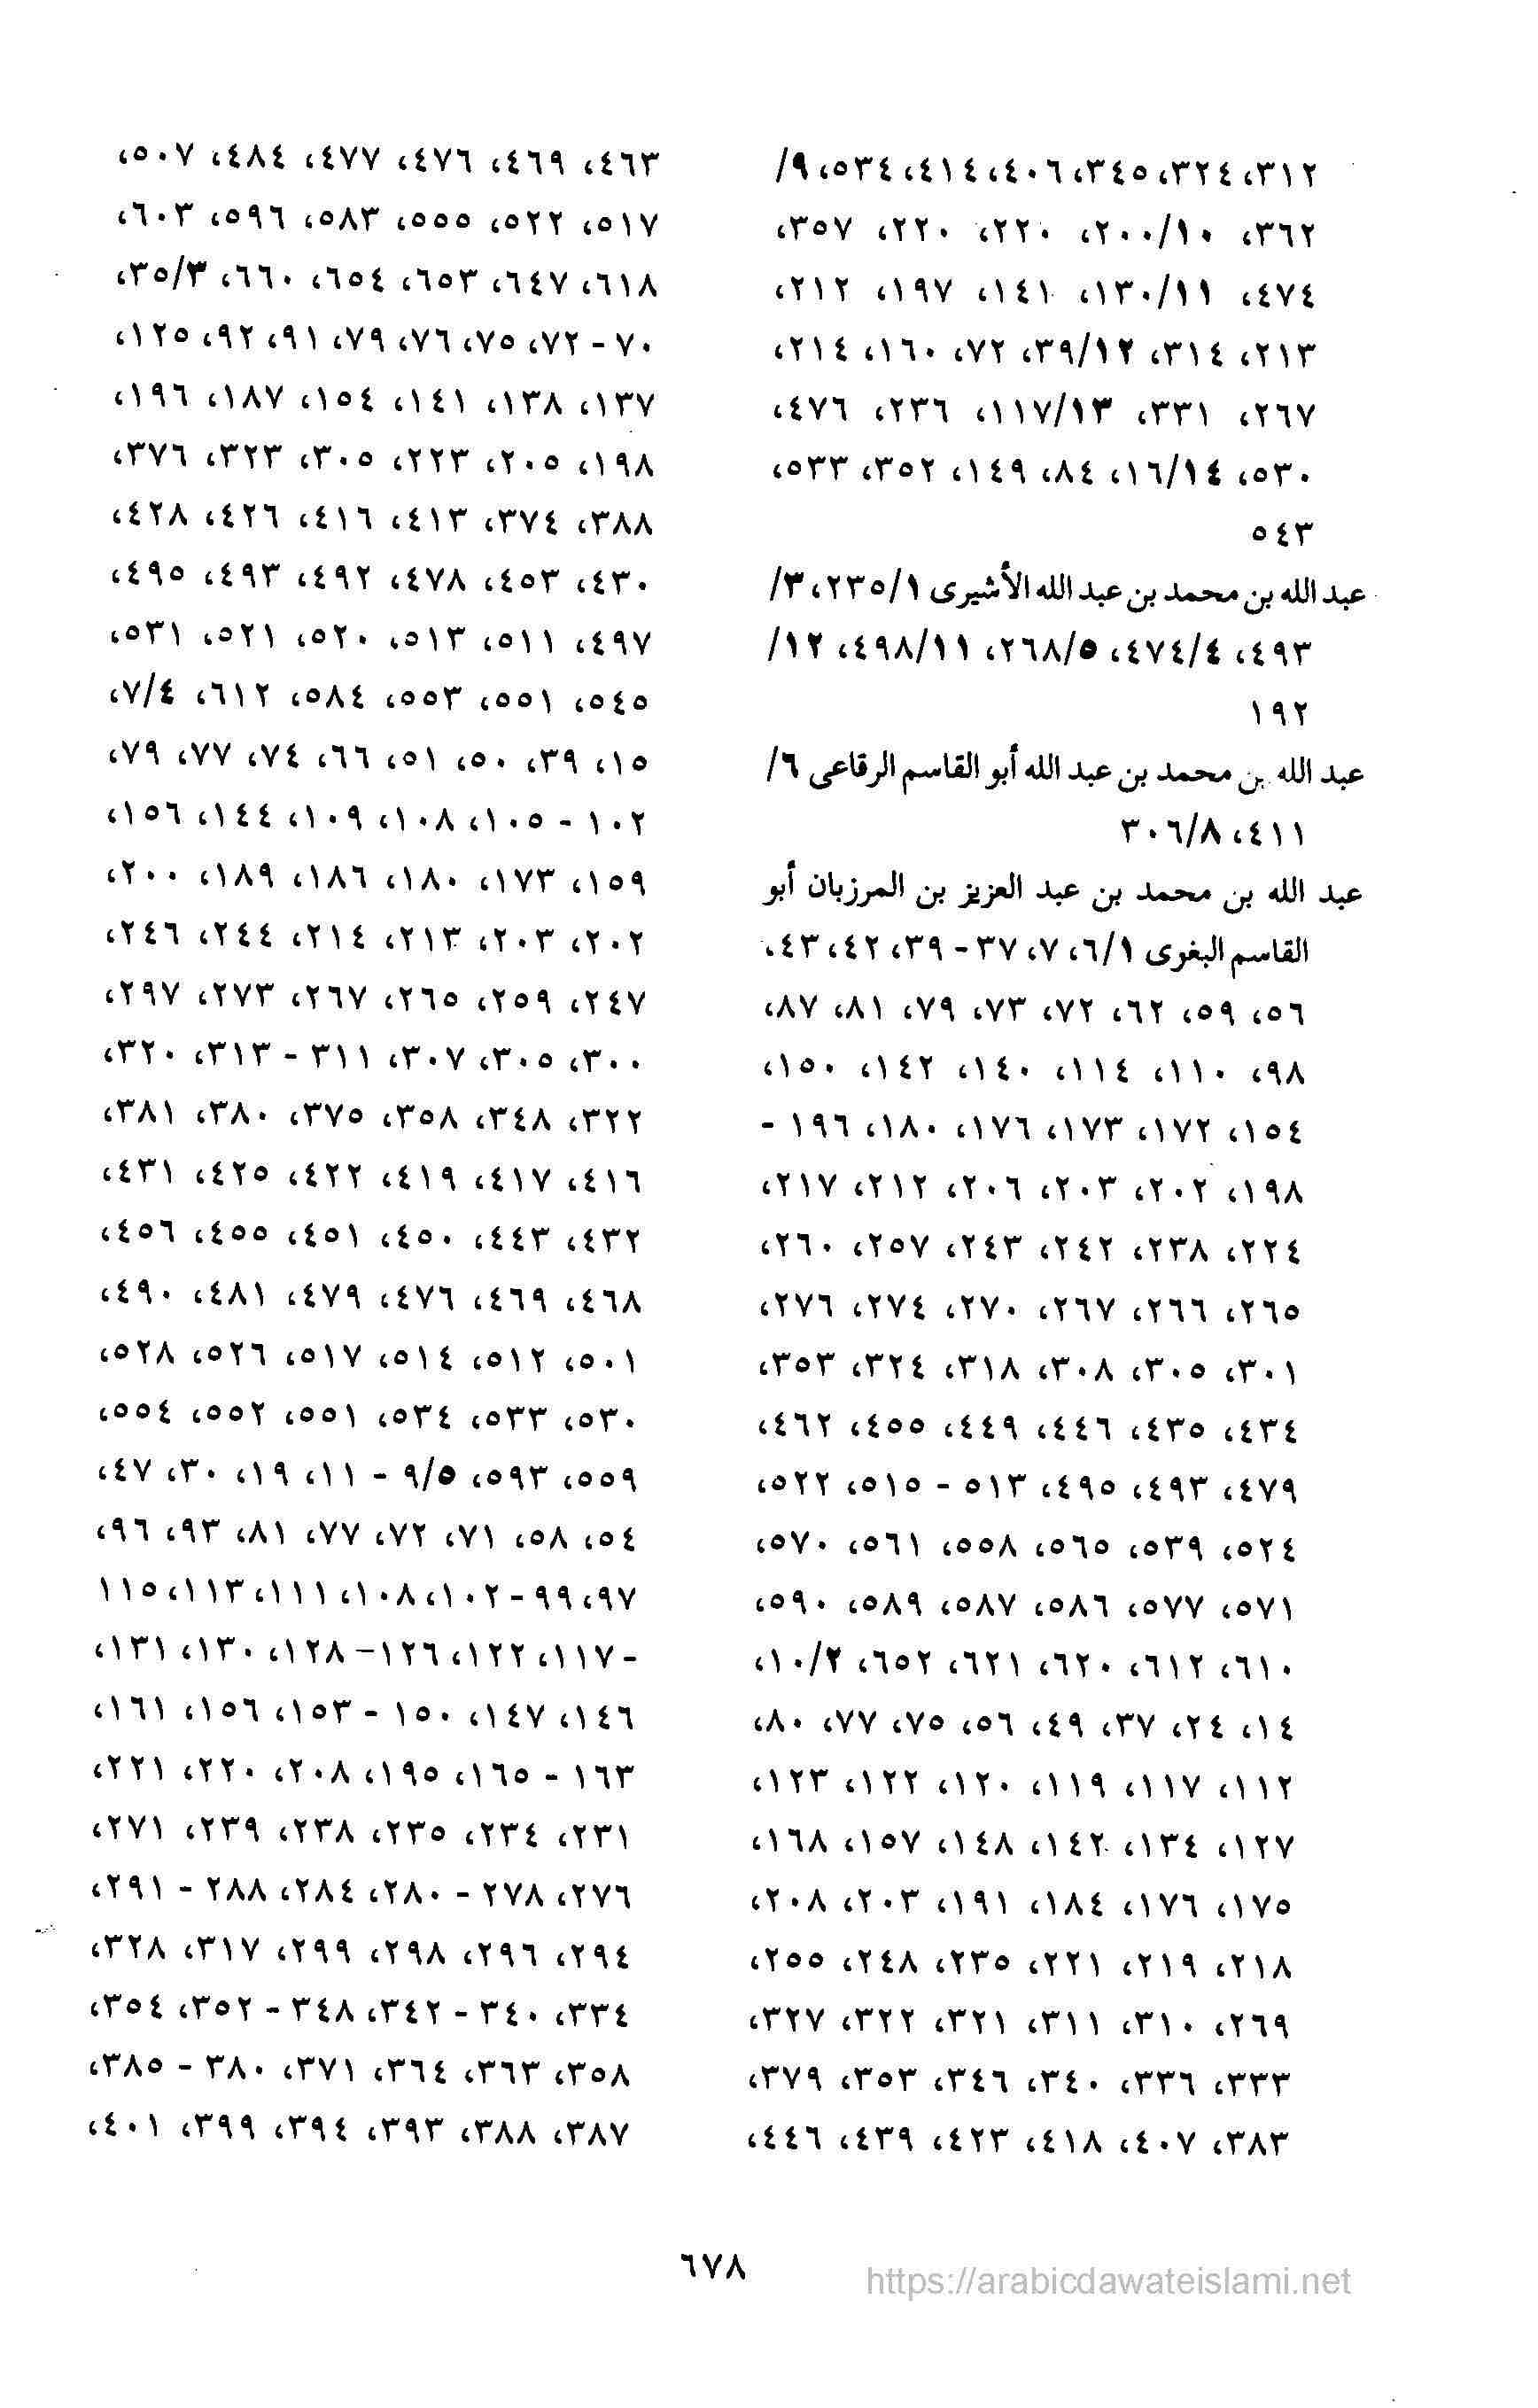 ٣١٢، ٣٢٤، ٣٤٥، ٤٠٦، ٤١٤، ٥٣٤، ٩/
٣٦٢، ٢٠٠/١٠، ٢٢٠، ٢٢٠، ٣٥٧،
٤٧٤، ١٣٠/١١، ١٤١، ١٩٧، ٢١٢،
٢١٣، ٣١٤، ٣٩/١٢، ٧٢، ١٦٠، ٢١٤،
٢٦٧، ٣٣١، ١١٧/١٣، ٢٣٦، ٤٧٦،
٥٣٠، ١٦/١٤، ٨٤، ١٤٩، ٣٥٢، ٥٣٣،
٥٤٣
عبد الله بن محمد بن عبد الله الأشيرى ٢٣٥/١، ٣/
٤٩٣، ٤٧٤/٤، ٢٦٨/٥، ٤٩٨/١١، ١٢/
١٩٢
عبد الله بن محمد بن عبد الله أبو القاسم الرقاعى ٦/
٤١١، ٣٠٦/٨
عبد الله بن محمد بن عبد العزيز بن المرزبان أبو
القاسم البغوى ٦/١، ٧، ٣٧ - ٣٩، ٤٢، ٤٣،
٥٦، ٥٩، ٦٢، ٧٢، ٧٣، ٧٩، ٨١، ٨٧،
٩٨، ١١٠، ١١٤، ١٤٠، ١٤٢، ١٥٠،
١٥٤، ١٧٢، ١٧٣، ١٧٦، ١٨٠، ١٩٦ -
١٩٨، ٢٠٢، ٢٠٣، ٢٠٦، ٢١٢، ٢١٧،
٢٢٤، ٢٣٨، ٢٤٢، ٢٤٣، ٢٥٧، ٢٦٠،
٢٦٥، ٢٦٦، ٢٦٧، ٢٧٠، ٢٧٤، ٢٧٦،
٣٠١، ٣٠٥، ٣٠٨، ٣١٨، ٣٢٤، ٣٥٣،
٤٣٤، ٤٣٥، ٤٤٦، ٤٤٩، ٤٥٥، ٤٦٢،
٤٧٩، ٤٩٣، ٤٩٥، ٥١٣ - ٥١٥، ٥٢٢،
٥٢٤، ٥٣٩، ٥٦٥، ٥٥٨، ٥٦١، ٥٧٠،
٥٧١، ٥٧٧، ٥٨٦، ٥٨٧، ٥٨٩، ٥٩٠،
٦١٠، ٦١٢، ٦٢٠، ٦٢١، ٦٥٢، ١٠/٢،
١٤، ٢٤، ٣٧، ٤٩، ٥٦، ٧٥، ٧٧، ٨٠،
١١٢، ١١٧، ١١٩، ١٢٠، ١٢٢، ١٢٣،
١٢٧، ١٣٤، ١٤٢، ١٤٨، ١٥٧، ١٦٨،
١٧٥، ١٧٦، ١٨٤، ١٩١، ٢٠٣، ٢٠٨،
٢١٨، ٢١٩، ٢٢١، ٢٣٥، ٢٤٨، ٢٥٥،
٢٦٩، ٣١٠، ٣١١، ٣٢١، ٣٢٢، ٣٢٧،
٣٣٣، ٣٣٦، ٣٤٠، ٣٤٦، ٣٥٣، ٣٧٩،
٣٨٣، ٤٠٧، ٤١٨، ٤٢٣، ٤٣٩، ٤٤٦،
٤٦٣، ٤٦٩، ٤٧٦، ٤٧٧، ٤٨٤، ٥٠٧،
٥١٧، ٥٢٢، ٥٥٥، ٥٨٣، ٥٩٦، ٦٠٣،
٦١٨، ٦٤٧، ٦٥٣، ٦٥٤، ٦٦٠، ٣٥/٣،
٧٠ - ٧٢، ٧٥، ٧٦، ٧٩، ٩١، ٩٢، ١٢٥،
١٣٧، ١٣٨، ١٤١، ١٥٤، ١٨٧، ١٩٦،
١٩٨، ٢٠٥، ٢٢٣، ٣٠٥، ٣٢٣، ٣٧٦،
٣٨٨، ٣٧٤، ٤١٣، ٤١٦، ٤٢٦، ٤٢٨،
٤٣٠، ٤٥٣، ٤٧٨، ٤٩٢، ٤٩٣، ٤٩٥،
٤٩٧، ٥١١، ٥١٣، ٥٢٠، ٥٢١، ٥٣١،
٥٤٥، ٥٥١، ٥٥٣، ٥٨٤، ٦١٢، ٧/٤،
١٥، ٣٩، ٥٠، ٥١، ٦٦، ٧٤، ٧٧، ٧٩،
١٠٢ - ١٠٥، ١٠٨، ١٠٩، ١٤٤، ١٥٦،
١٥٩، ١٧٣، ١٨٠، ١٨٦، ١٨٩، ٢٠٠،
٢٠٢، ٢٠٣، ٢١٣، ٢١٤، ٢٤٤، ٢٤٦،
٢٤٧، ٢٥٩، ٢٦٥، ٢٦٧، ٢٧٣، ٢٩٧،
٣٠٠، ٣٠٥، ٣٠٧، ٣١١ - ٣١٣، ٣٢٠،
٣٢٢، ٣٤٨، ٣٥٨، ٣٧٥، ٣٨٠، ٣٨١،
٤١٦، ٤١٧، ٤١٩، ٤٢٢، ٤٢٥، ٤٣١،
٤٣٢، ٤٤٣، ٤٥٠، ٤٥١، ٤٥٥، ٤٥٦،
٤٦٨، ٤٦٩، ٤٧٦، ٤٧٩، ٤٨١، ٤٩٠،
٥٠١، ٥١٢، ٥١٤، ٥١٧، ٥٢٦، ٥٢٨،
٥٣٠، ٥٣٣، ٥٣٤، ٥٥١، ٥٥٢، ٥٥٤،
٥٥٩، ٥٩٣، ٩/٥ - ١١، ١٩، ٣٠، ٤٧،
٥٤، ٥٨، ٧١، ٧٢، ٧٧، ٨١، ٩٣، ٩٦،
٩٧، ٩٩ - ١٠٢، ١٠٨، ١١١، ١١٣، ١١٥
- ١١٧، ١٢٢، ١٢٦ - ١٢٨، ١٣٠، ١٣١،
١٤٦، ١٤٧، ١٥٠ - ١٥٣، ١٥٦، ١٦١،
١٦٣ - ١٦٥، ١٩٥، ٢٠٨، ٢٢٠، ٢٢١،
٢٣١، ٢٣٤، ٢٣٥، ٢٣٨، ٢٣٩، ٢٧١،
٢٧٦، ٢٧٨ - ٢٨٠، ٢٨٤، ٢٨٨ - ٢٩١،
٢٩٤، ٢٩٦، ٢٩٨، ٢٩٩، ٣١٧، ٣٢٨،
٣٣٤، ٣٤٠ - ٣٤٢، ٣٤٨ - ٣٥٢، ٣٥٤،
٣٥٨، ٣٦٣، ٣٦٤، ٣٧١، ٣٨٠ - ٣٨٥،
٣٨٧، ٣٨٨، ٣٩٣، ٣٩٤، ٣٩٩، ٤٠١،
٦٧٨
https://arabicdawateislami.net